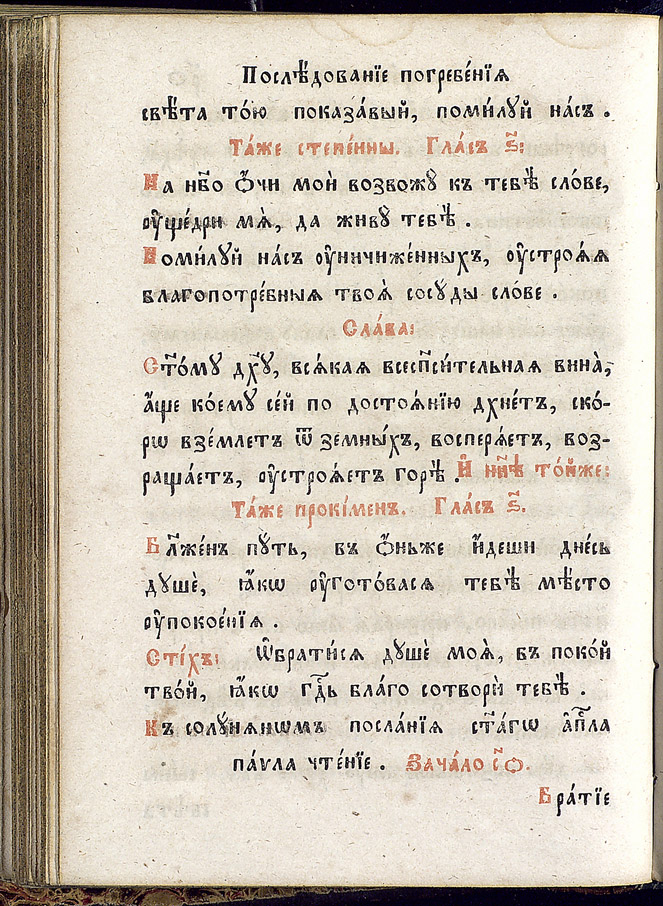 Послѣ́дованїе погребе́нїѧ
свѣ́та то́ю показа́вый, поми́лꙋй на́съ .
Та́же степе́нны. Гла́съ ѕ҃:
На нб҃о ѻ҆́чи моѝ возвожꙋ̀ къ тебѣ̀ сло́ве,
ᲂу҆ще́дри мѧ̀, да живꙋ̀ тебѣ̀ .
Поми́лꙋй на́съ ᲂу҆ничиже́нныхъ, ᲂу҆строѧ́ѧ
благопотре́бныѧ твоѧ̑ сосꙋ́ды сло́ве .
Сла́ва:
Ст҃о́мꙋ дх҃ꙋ, всѧ́каѧ всесп҃си́тельнаѧ вина̀,
а҆́ще ко́емꙋ се́й по достоѧ́нїю дхне́тъ, ско́-
рѡ взе́млетъ ѿ земны́хъ, восперѧ́етъ, воз-
раща́етъ, ᲂу҆строѧ́етъ горѣ̀ . И҆ нн҃ѣ то́йже:
Та́же прокі́менъ. Гла́съ ѕ҃.
Бл҃же́нъ пꙋ́ть, въ ѻ҆́ньже и҆́деши дне́сь
дꙋшѐ, ꙗ҆́кѡ ᲂу҆гото́васѧ тебѣ̀ мѣ́сто
ᲂу҆покое́нїѧ .
Сті́хъ: Ѡ҆брати́сѧ дꙋшѐ моѧ̀, въ поко́й
тво́й, ꙗ҆́кѡ гдⷭ҇ь бла́го сотворѝ тебѣ̀ .
Къ солꙋ́нѧнѡмъ посла́нїѧ ст҃а́гѡ а҆пⷭ҇ла
па́ѵла чте́нїе . Зача́ло со҃.
Бра́тїе